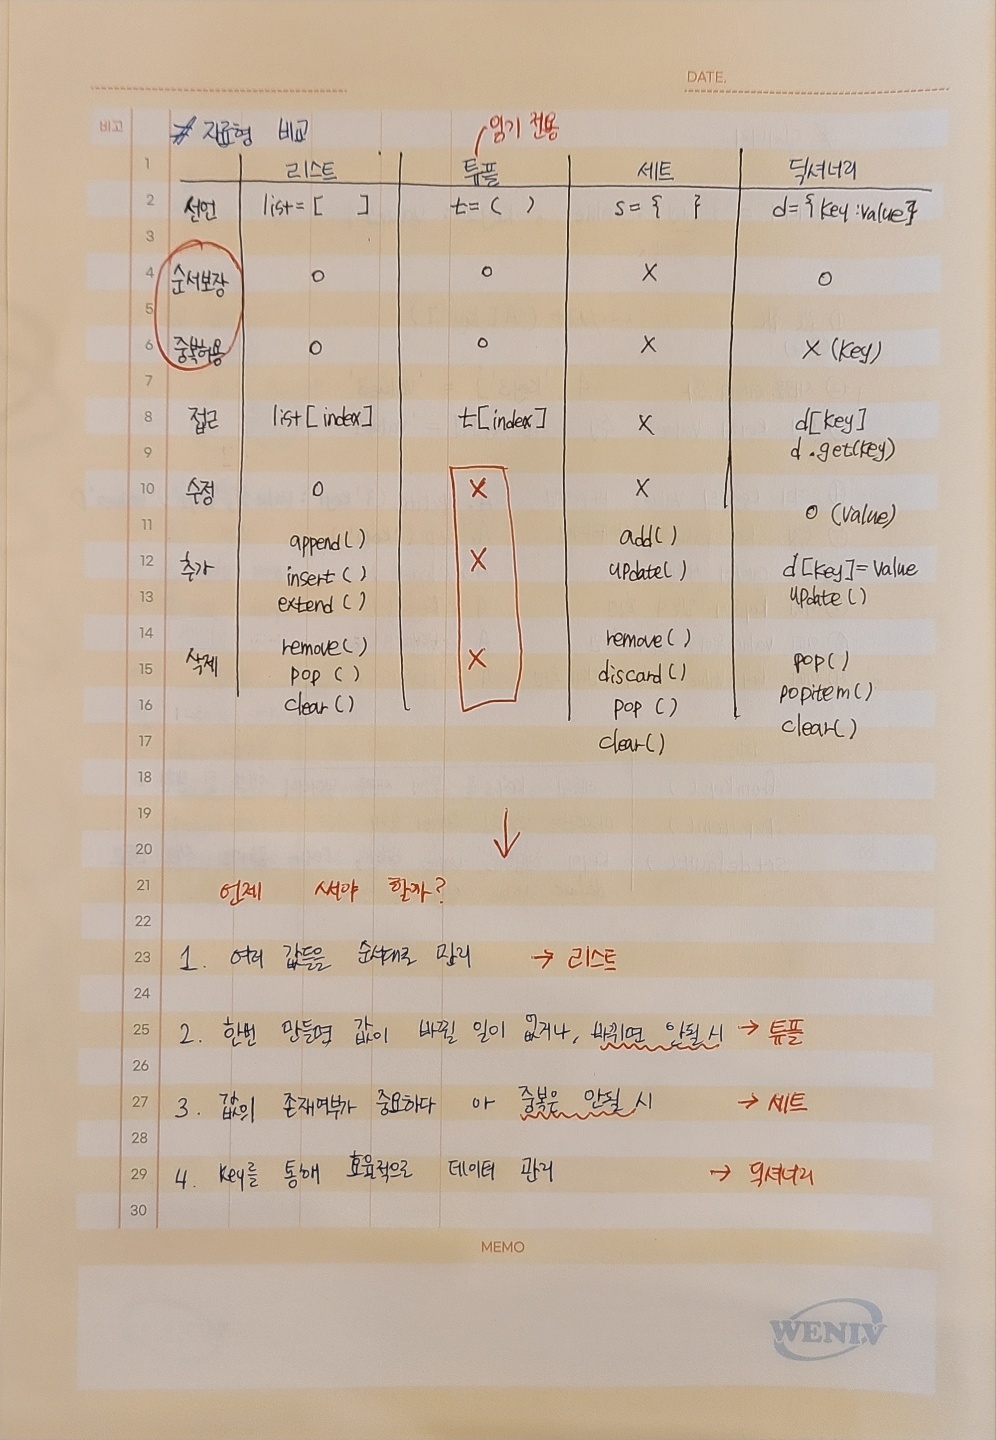 DATE.
비고
# 자료형 비교
읽기 전용
리스트 튜플 세트 딕셔너리
1
2 선언 list = [ ] t = ( ) s = { } d = {key : value}
3
4 순서보장 O O X O
5
6 중복허용 O O X X (key)
7
8 접근 list[index] t[index] X d[key]
9 d.get(key)
10 수정 O X X O (value)
11 append() add()
12 추가 insert() X update() d[key] = value
13 extend() update()
14 remove() remove()
15 삭제 pop() X discard() pop()
16 clear() pop() popitem()
17 clear() clear()
18
19 ↓
20
21 언제 써야 할까?
22
23 1. 여러 값들을 순서대로 관리 → 리스트
24
25 2. 한번 만들면 값이 바뀔 일이 없거나, 바뀌면 안될 시 → 튜플
26
27 3. 값의 존재여부가 중요하다 or 중복은 안될 시 → 세트
28
29 4. key를 통해 효율적으로 데이터 관리 → 딕셔너리
30
MEMO
WENIV